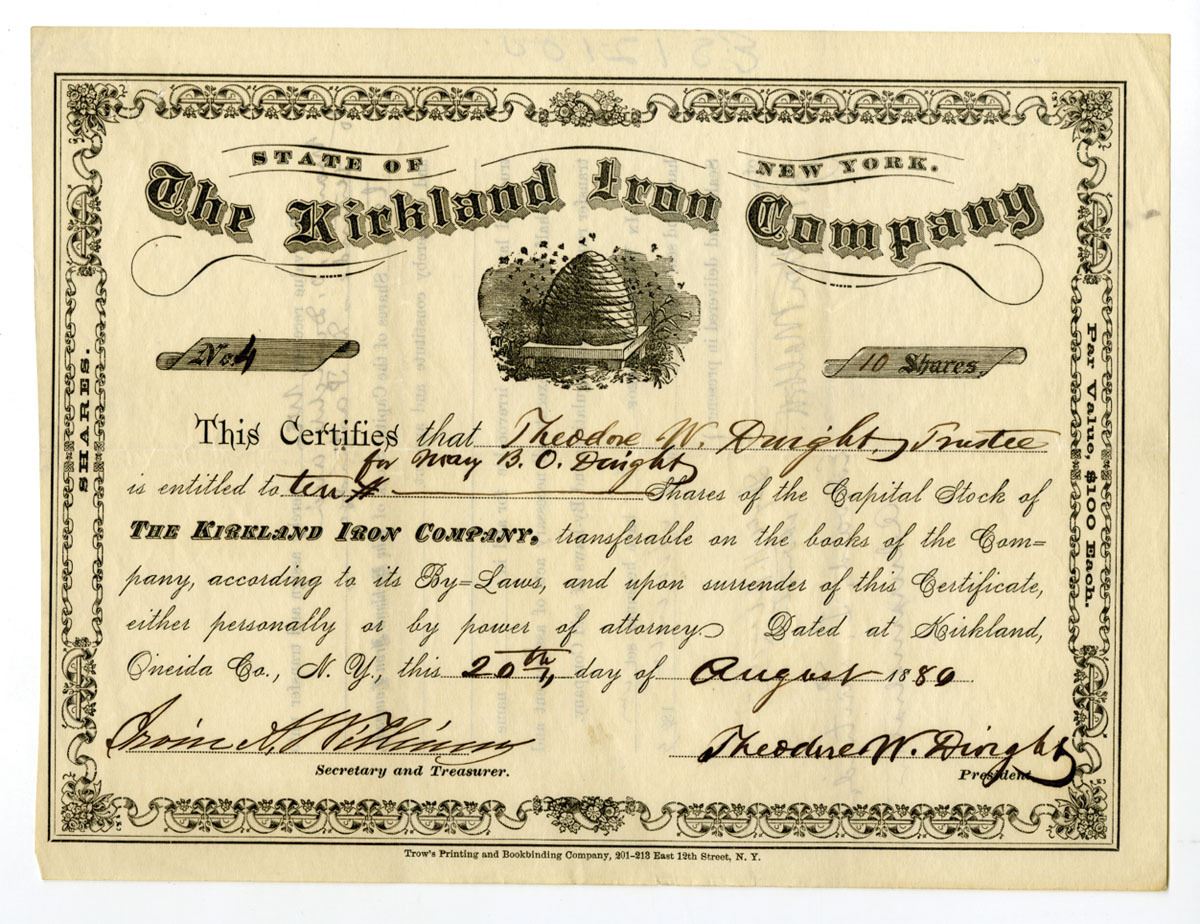 STATE OF NEW YORK.
The Kirkland Iron Company
No. 4
10 Shares.
SHARES.
Par Value, $100 Each.
This Certifies that Theodore W. Dwight, Trustee
for May B. O. Dwight
is entitled to ten Shares of the Capital Stock of
THE KIRKLAND IRON COMPANY, transferable on the books of the Com=
pany, according to its By=Laws, and upon surrender of this Certificate,
either personally or by power of attorney Dated at Kirkland,
Oneida Co., N. Y., this 20th, day of August 1886
Irvin A. Williams
Theodore W. Dwight
Secretary and Treasurer.
President
Trow's Printing and Bookbinding Company, 201-213 East 12th Street, N. Y.